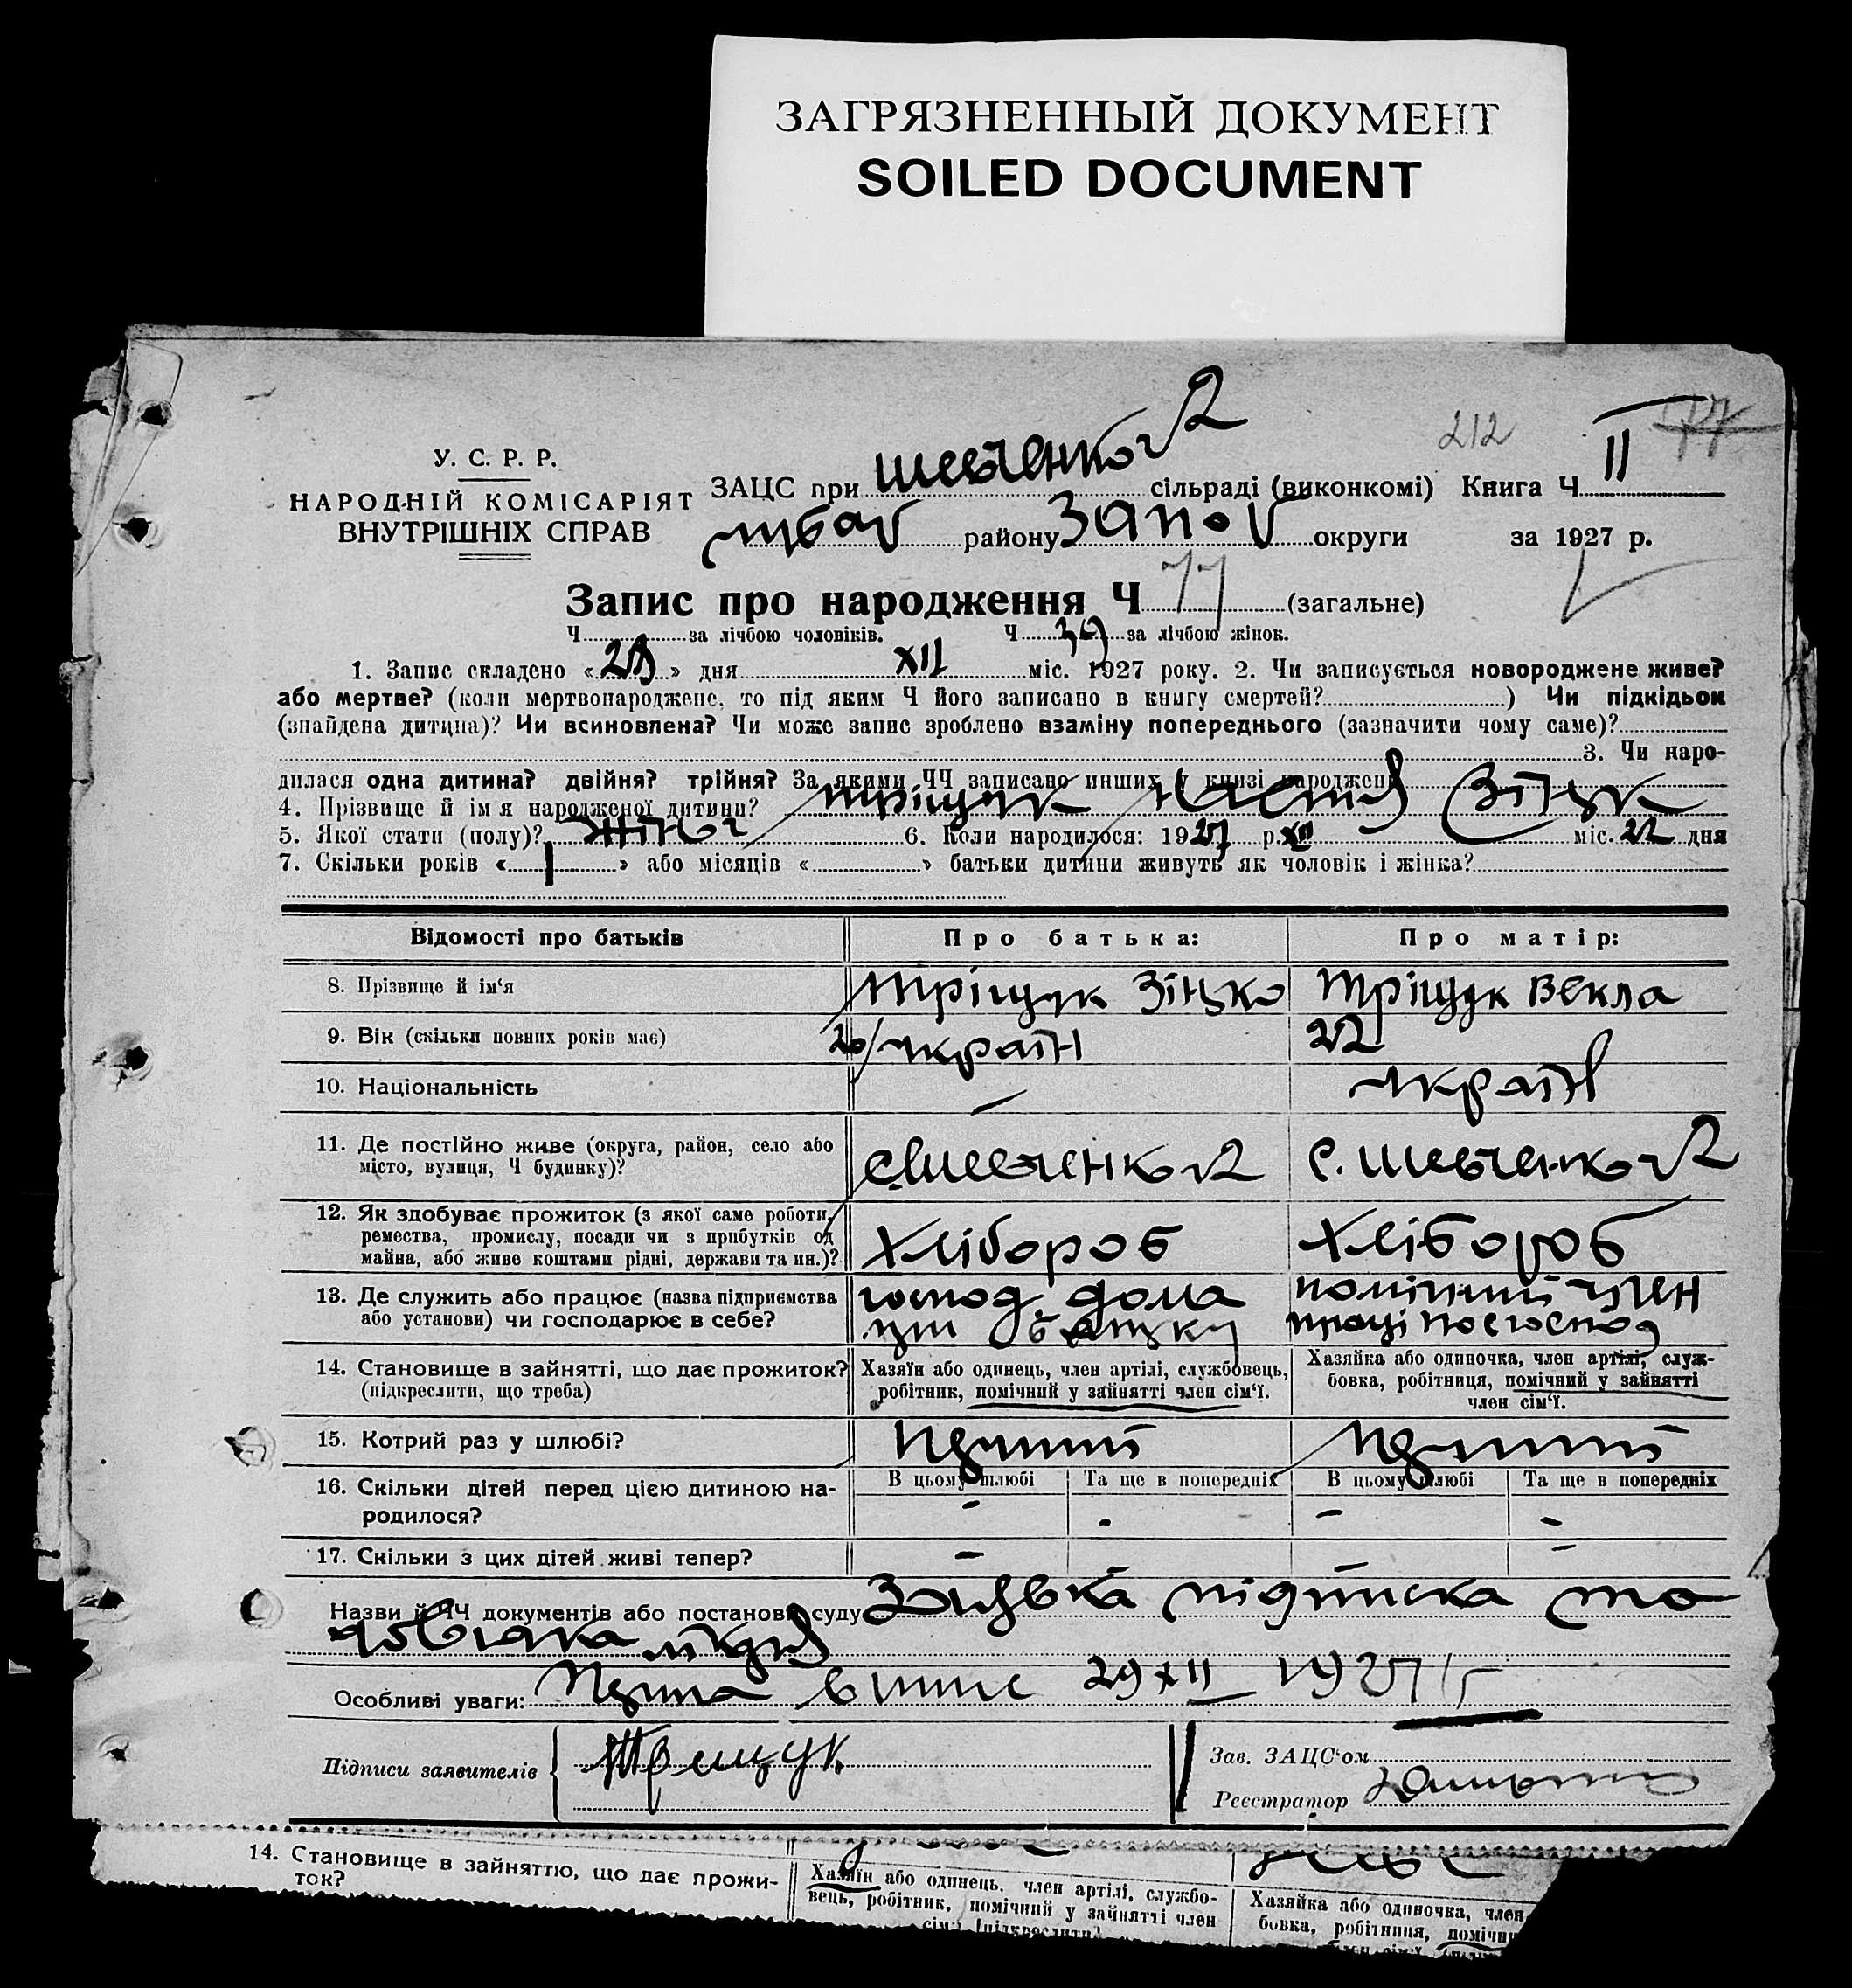 ЗАГРЯЗНЕННЫЙ ДОКУМЕНТ
SOILED DOCUMENT
212
У. С. Р. Р.
НАРОДНІЙ КОМІСАРІЯТ
ВНУТРІШНІХ СПРАВ
ЗАЦС при Шевченков2 сільраді (виконкомі) Книга Ч II
району Запов округи за 1927 р.
Запис про народження Ч 77 (загальне)
Ч за лічбою чоловіків. Ч 39 за лічбою жінок.
1. Запис складено « » дня XII міс. 1927 року. 2. Чи записується новороджене живе?
або мертве? (коли мертвонароджене, то під яким Ч його записано в книгу смертей? ) Чи підкідьок
(знайдена дитина)? Чи всиновлена? Чи може запис зроблено взаміну попереднього (зазначити чому саме)?
3. Чи наро-
дилася одна дитина? двійня? трійня? За якими ЧЧ записано инших у книзі народжень
4. Прізвище й імя народженої дитини? Тріщук Настя
5. Якої стати (полу)? Жіноч 6. Коли народилося: 1927 р. XII міс. 22 дня
7. Скільки років « 1 » або місяців « » батьки дитини живуть як чоловік і жінка?
Відомості про батьків Про батька: Про матір:
8. Прізвище й ім‘я Тріщук Зінько Тріщук Векла
9. Вік (скільки повних років має) 20/україн 22
10. Національність україн
11. Де постійно живе (округа, район, село або
місто, вулиця, Ч будинку)? с. Шевченков2 с. Шевченков2
12. Як здобуває прожиток (з якої саме роботи,
ремества, промислу, посади чи з прибутків од
майна, або живе коштами рідні, держави та ин.)? Хлібороб Хлібороб
13. Де служить або працює (назва підприємства
або установи) чи господарює в себе? господ. дома помічний член
14. Становище в зайнятті, що дає прожиток?
(підкреслити, що треба)
Хазяїн або одинець, член артілі, службовець,
робітник, помічний у зайнятті член сім‘ї.
Хазяйка або одиночка, член артілі, служ-
бовка, робітниця, помічний у зайнятті
член сім‘ї.
15. Котрий раз у шлюбі? перший перший
16. Скільки дітей перед цією дитиною на-
родилося?
В цьому шлюбі Та ще в попередніх В цьому шлюбі Та ще в попередніх
- - - -
17. Скільки з цих дітей живі тепер? - - -
Назви й ЧЧ документів або постанови суду Заява підписка та
довідка
Особливі уваги: 29 XII 1927 г
Підписи заявителів Трещук
Зав. ЗАЦС‘ом
Реєстратор
14. Становище в зайняттю, що дає прожи-
ток?
Хазяїн або одинець, член артілі, службо-
вець, робітник, помічний у зайнятті член
сім‘ї (підкреслити)
Хазяйка або одиночка, член
бовка, робітниця, помічни